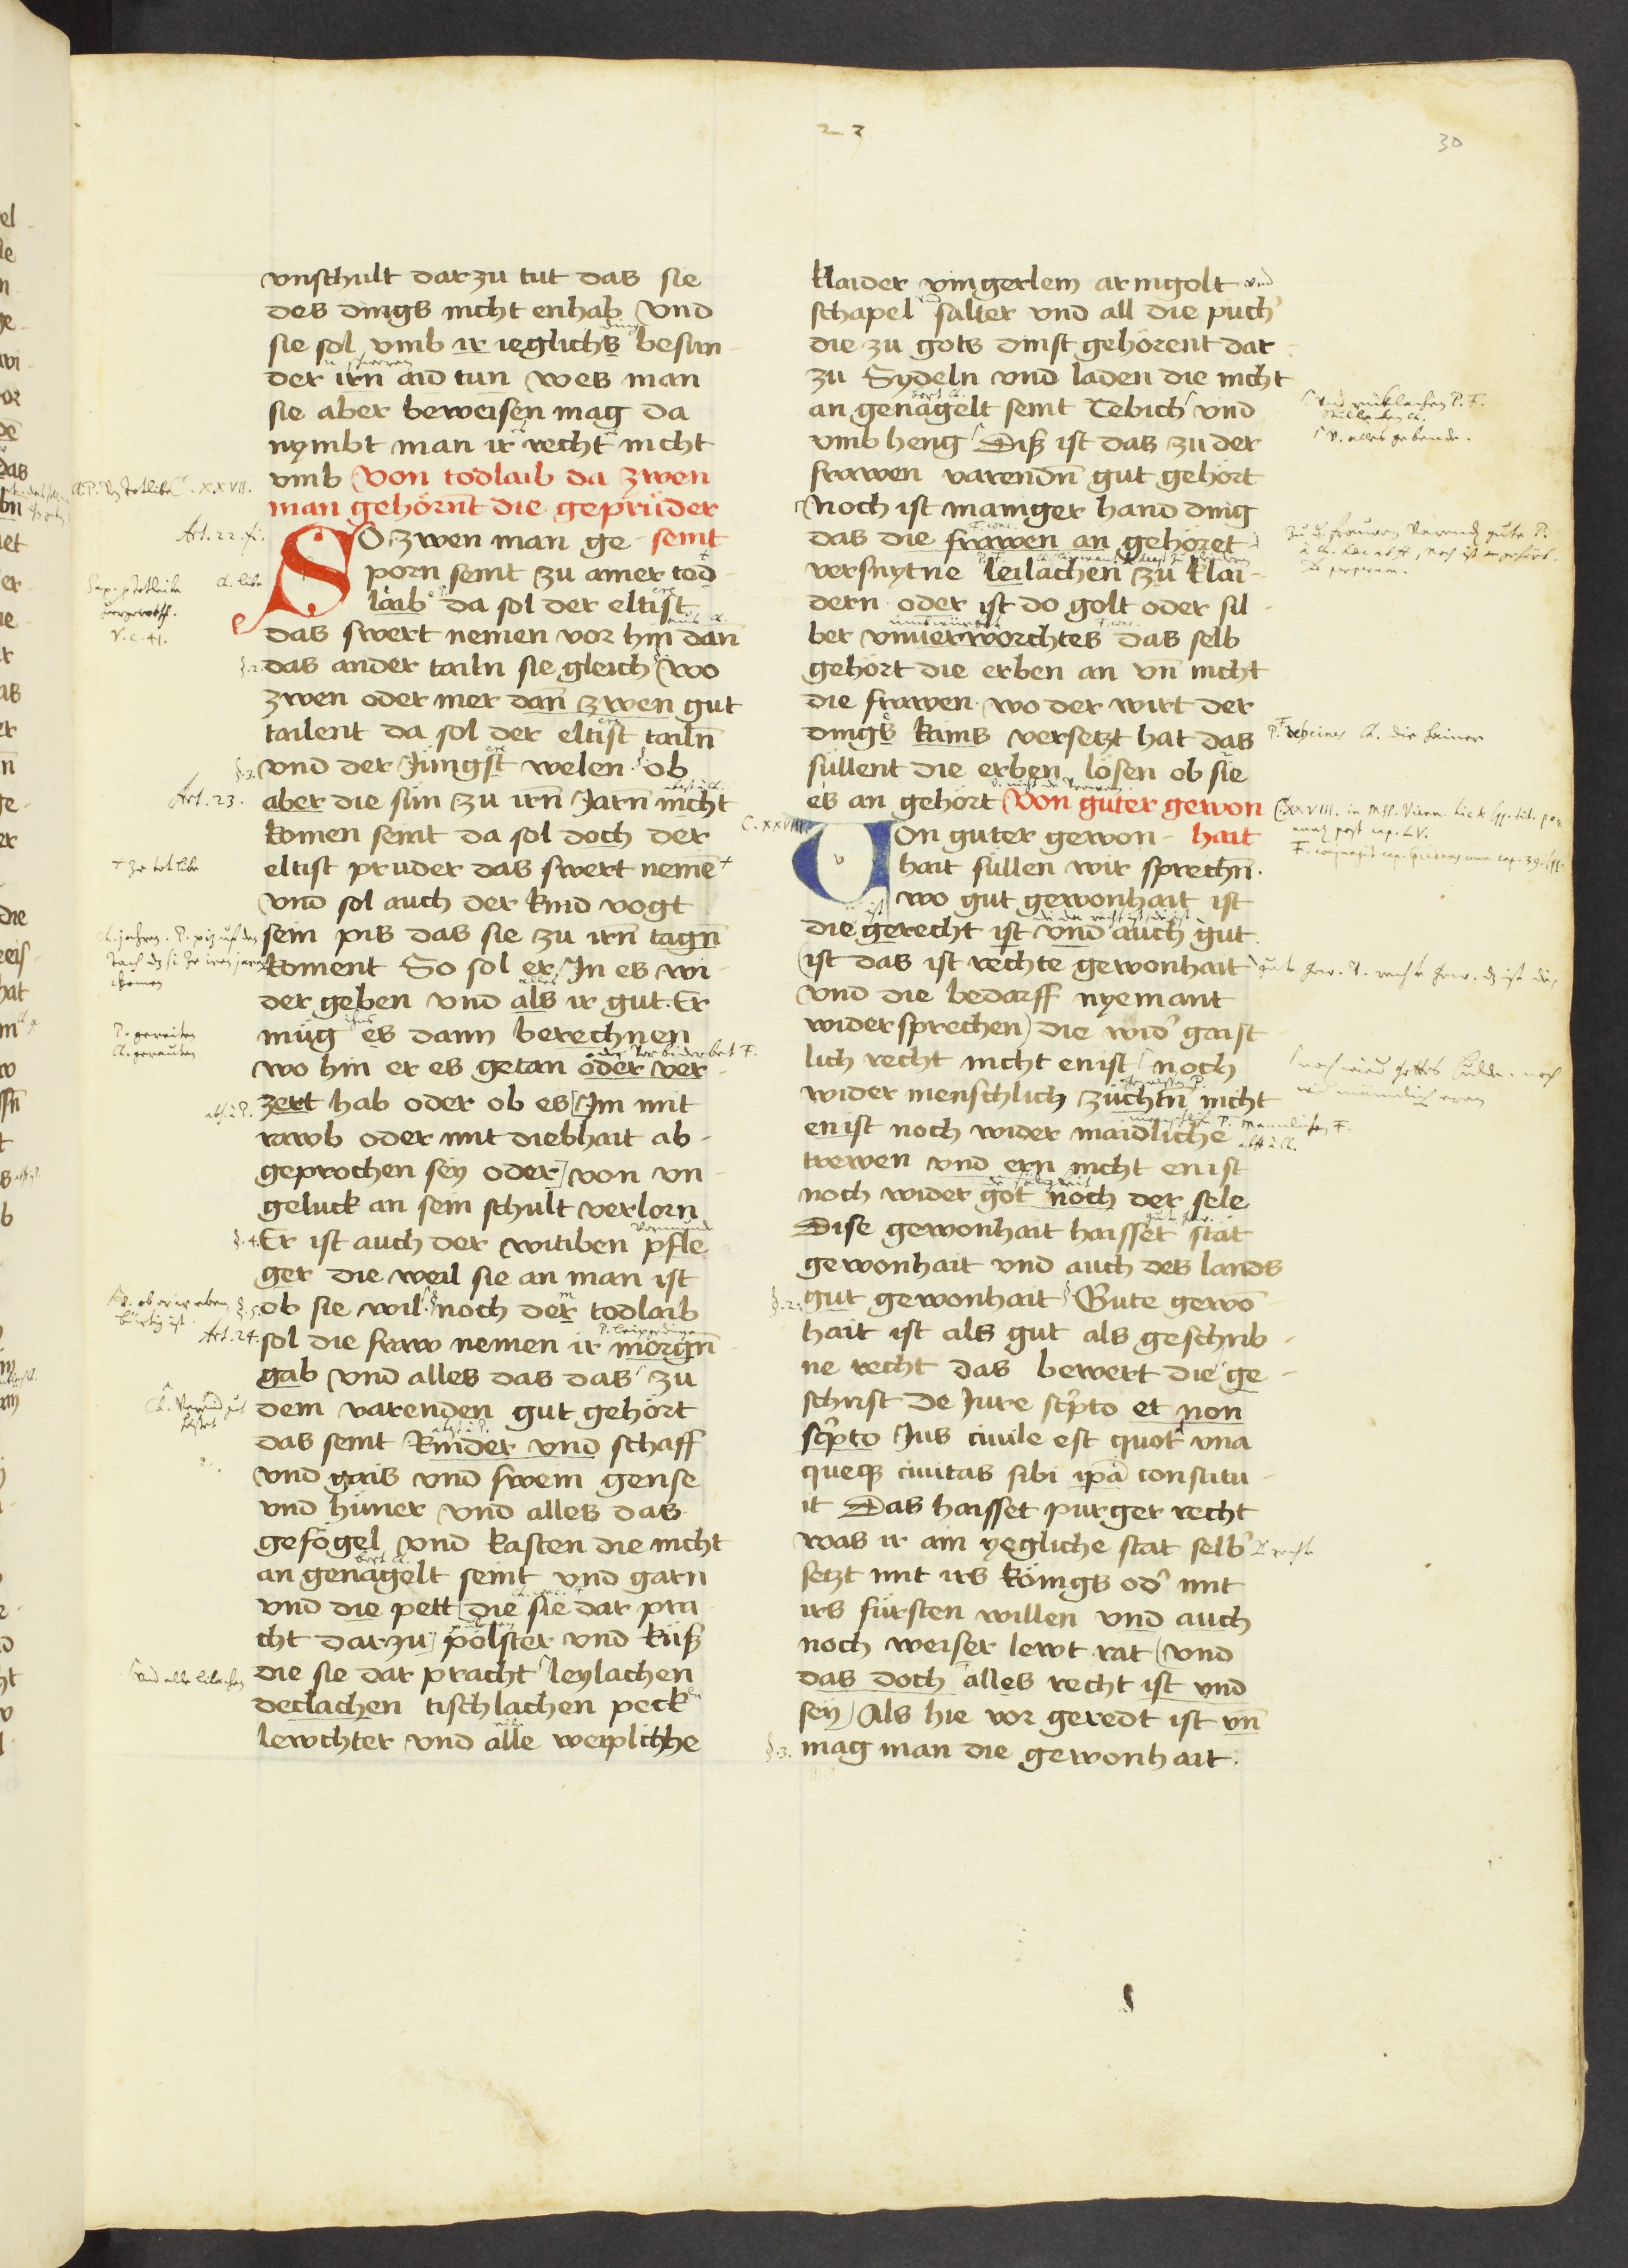 23
30
vnschult dar zu tut das sie
des dings nicht enhab Vnd
sie sol vmb ir ieglichs besun-
der irn aid tun wes man
sie aber beweisen mag da
nymbt man ir recht nicht
vmb Von todlaib da zwen
man gehörnt die geprüder
SO zwen man ge- seint
porn seint zu ainer tod-
laib da sol der eltist
das swert nemen vor hin dan̄
das ander tailn sie gleich wo
zwen oder mer dan̄ zwen gut
tailent da sol der eltist tailn̄
vnd der Jüngst welen ob
aber die sün zu irn̄ Jarn̄ nicht
komen seint da sol doch der
eltist pruder das swert neme
vnd sol auch der kind vogt
sein pis das sie zu irn̄ tagn̄
koment So sol er In es wi-
der geben vnd als ir gut. Er
müg es dann berechnen
wo hin er es getan oder ver-
zert hab oder ob es Im mit
rawb oder mit diebhait ab-
geprochen sey oder von vn-
geluck an sein schult verlorn
Er ist auch der witiben pfle
ger die weil sie an man ist
ob sie wil noch der todlaib
sol die fraw nemen ir morgn̄
gab vnd alles das das zu
dem varenden gut gehört
das seint Rinder vnd schaff
vnd gais vnd swein gense
vnd hüner vnd alles das
gefögel vnd kasten die nicht
an genagelt seint vnd garn
vnd die pett die sie dar pra
cht dar zu pölster vnd küß
die sie dar pracht leylachen
declachen tischlachen peck
lewchter vnd alle weiplichhe
klaider vingerlein armgolt vnd
schapel salter vnd all die püch'
die zu gots dinst gehörent dar
zu Sydeln vnd laden die nicht
an genagelt seint Tebich vnd
vmb heng Diß ist das zu der
frawen varendn̄ gut gehört
Noch ist maniger hand ding
das die frawen an gehöret
versnytne leilachen zu klai-
dern oder ist do golt oder sil-
ber vnuerworchtes das selb
gehört die erben an vn̄ nicht
die frawen. wo der wirt der
dings kains versetzt hat das
süllent die erben lösen ob sie
es an gehört Von guter gewon
VOn guter gewon- hait
hait süllen wir sprechn̄.
wo gut gewonhait ist
die gerecht ist vnd auch gut
ist das ist rechte gewonhait
vnd die bedarff nyemant
wider sprechen die wid' gaist
lich recht nicht enist noch
wider menschlich züchtn̄ nicht
enist noch wider maidliche
trewen vnd ern nicht enist
noch wider got noch der sele
Dise gewonhait haisset stät
gewonhait vnd auch des lands
gut gewonhait Gute gewō
hait ist als gut als geschrib-
ne recht das bewert die ge-
schrift de Jure sc̄pto et non
sc̄pto Jus ciuile est quot vna
queq3 ciuitas sibi ip̄a constitu-
it Das haisset purger recht
was ir ain yegliche stat selb'
setzt mit irs königs od' mit
irs fürsten willen vnd auch
noch weiser lewt rat vnd
das doch alles recht ist vnd
sey Als hie vor geredt ist vn̄
mag man die gewonhait.
C. XXVII.
Art. 22.
§.2.
§.3.
Art. 23.
§.4.
§.5.
Art. 24.
C. XXVIII.
§.2.
§.3.